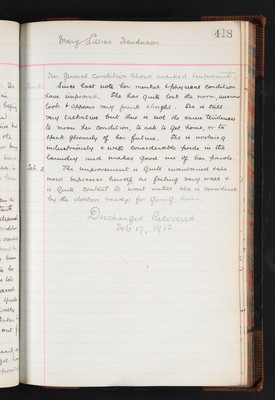 418
Mary Lilian Henderson.
Her general condition shows marked improvement.
Since last note her mental & physical condition
have improved. She has quite lost the morn, insane
look & appears very much bright. She is still
very talkative but there is not the same tendency
to moan her condition, to ask to get home, or to
speak gloomily of her future. She is working
industriously & with considerable pride in the
laundry and makes good use of her parole.
Feb. 2. The improvement is quite maintained & she
now expresses herself as feeling very well &
is quite content to wait until she is considered
by the doctors ready for going home.
Discharged Recovered
Feb 17, 1903